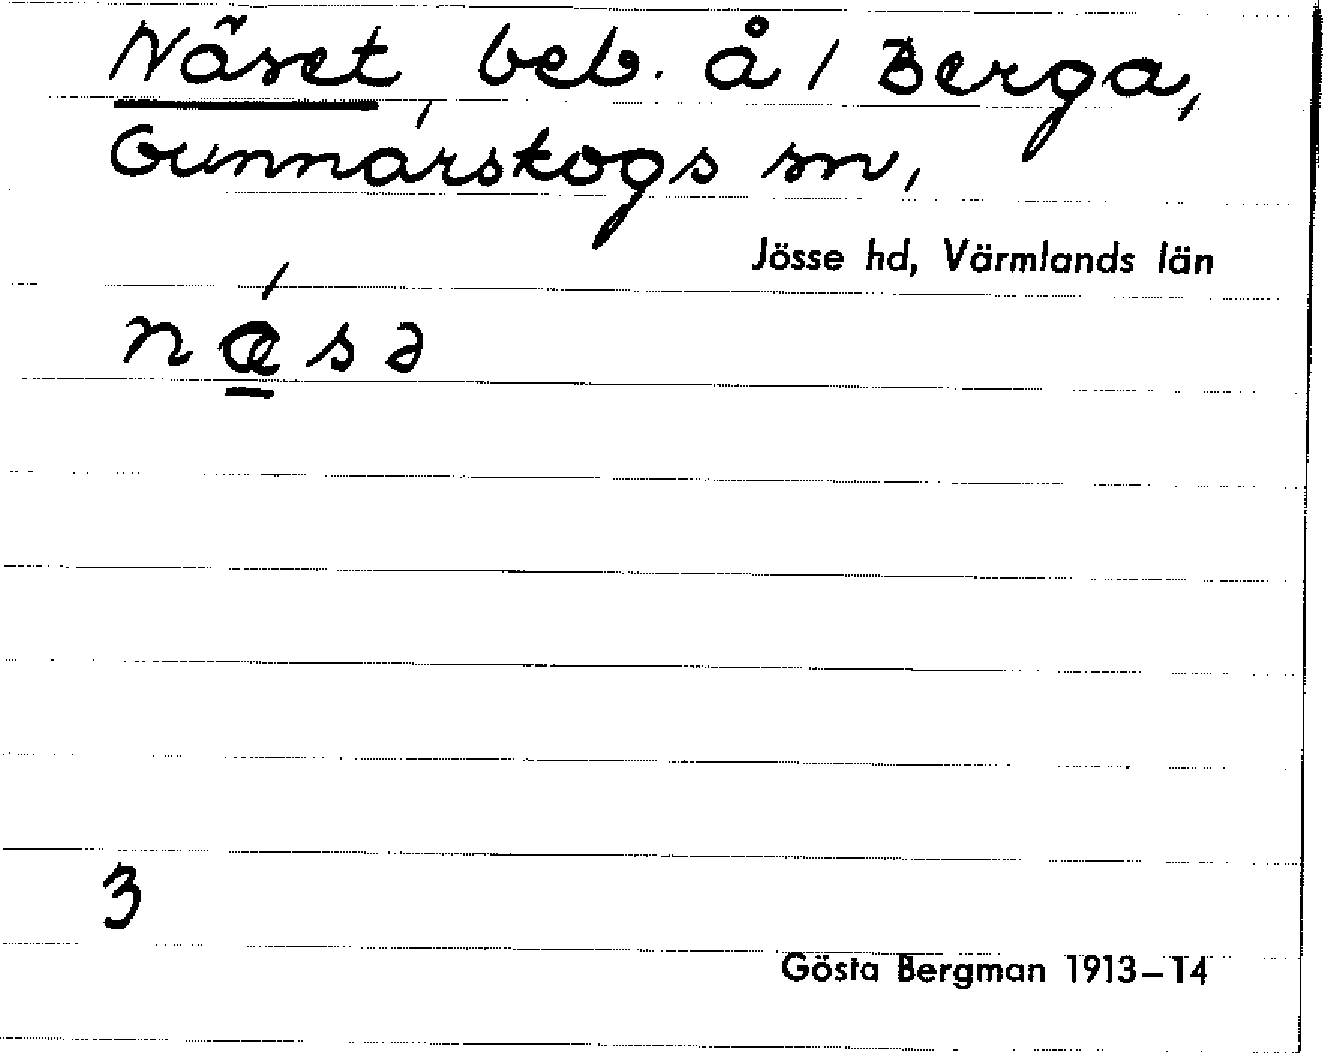 Näset, beb. å 1 Berga,
Gunnarskogs sn,
Jösse hd, Värmlands län
nǽsə
3
Gösta Bergman 1913–14